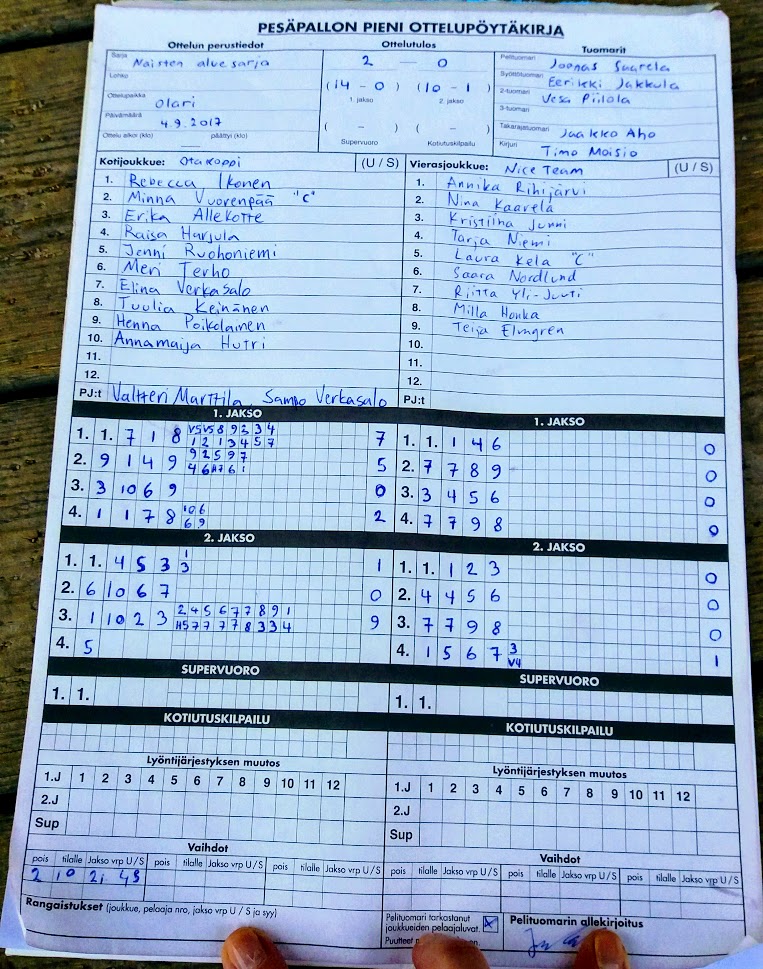 PESÄPALLON PIENI OTTELUPÖYTÄKIRJA
Ottelun perustiedot Ottelutulos Tuomarit
Sarja Naisten aluesarja 2 — 0 Pelituomari Joonas Saarela
Lohko Syöttötuomari Eerikki Jakkula
(14 - 0) (10 - 1) 2-tuomari Vesa Piilola
Ottelupaikka Olari 1. jakso 2. jakso 3-tuomari
Päivämäärä 4.9.2017 Takarajatuomari Jaakko Aho
( - ) ( - )
Ottelu alkoi (klo) päättyi (klo) Supervuoro Kotiutuskilpailu Kirjuri Timo Moisio
Kotijoukkue: Otakoppi (U / S) Vierasjoukkue: Nice Team (U / S)
1. Rebecca Ikonen 1. Annika Riihijärvi
2. Minna Vuorenpää "C" 2. Nina Kaarela
3. Erika Allekotte 3. Kristiina Junni
4. Raisa Harjula 4. Tarja Niemi
5. Jenni Ruohoniemi 5. Laura Kela "C"
6. Meri Terho 6. Saara Nordlund
7. Elina Verkasalo 7. Riitta Yli-Juuti
8. Tuulia Keinänen 8. Milla Honka
9. Henna Poikolainen 9. Teija Elmgren
10. Annamaija Hutri 10.
11. 11.
12. 12.
PJ:t Valtteri Marttila, Sampo Verkasalo PJ:t
1. JAKSO 1. JAKSO
1. 1. 7 1 8 7 1. 1. 1 4 6 0
2. 9 1 4 9 5 2. 7 7 8 9 0
3. 3 10 6 9 0 3. 3 4 5 6 0
4. 1 1 7 8 10 6 2 4. 7 7 9 8 0
6 9
2. JAKSO 2. JAKSO
1. 1. 4 5 3 1 1 1. 1. 1 2 3 0
3
2. 6 10 6 7 0 2. 4 4 5 6 0
3. 1 10 2 3 2 4 5 6 7 7 8 9 1 9 3. 7 7 9 8 0
4. 5 4. 1 5 6 7 3 1
V4
SUPERVUORO SUPERVUORO
1. 1. 1. 1.
KOTIUTUSKILPAILU KOTIUTUSKILPAILU
Lyöntijärjestyksen muutos Lyöntijärjestyksen muutos
1.J 1 2 3 4 5 6 7 8 9 10 11 12 1.J 1 2 3 4 5 6 7 8 9 10 11 12
2.J 2.J
Sup Sup
Vaihdot Vaihdot
pois tilalle Jakso vrp U / S pois tilalle Jakso vrp U / S pois tilalle Jakso vrp U / S pois tilalle Jakso vrp U/S pois tilalle Jakso vrp U/S pois tilalle Jakso vrp U/S
2 10 2. 4S
Rangaistukset (joukkue, pelaaja nro, jakso vrp U / S ja syy) Pelituomari tarkastanut Pelituomarin allekirjoitus
joukkueiden pelaajaluvat.
Puutteet